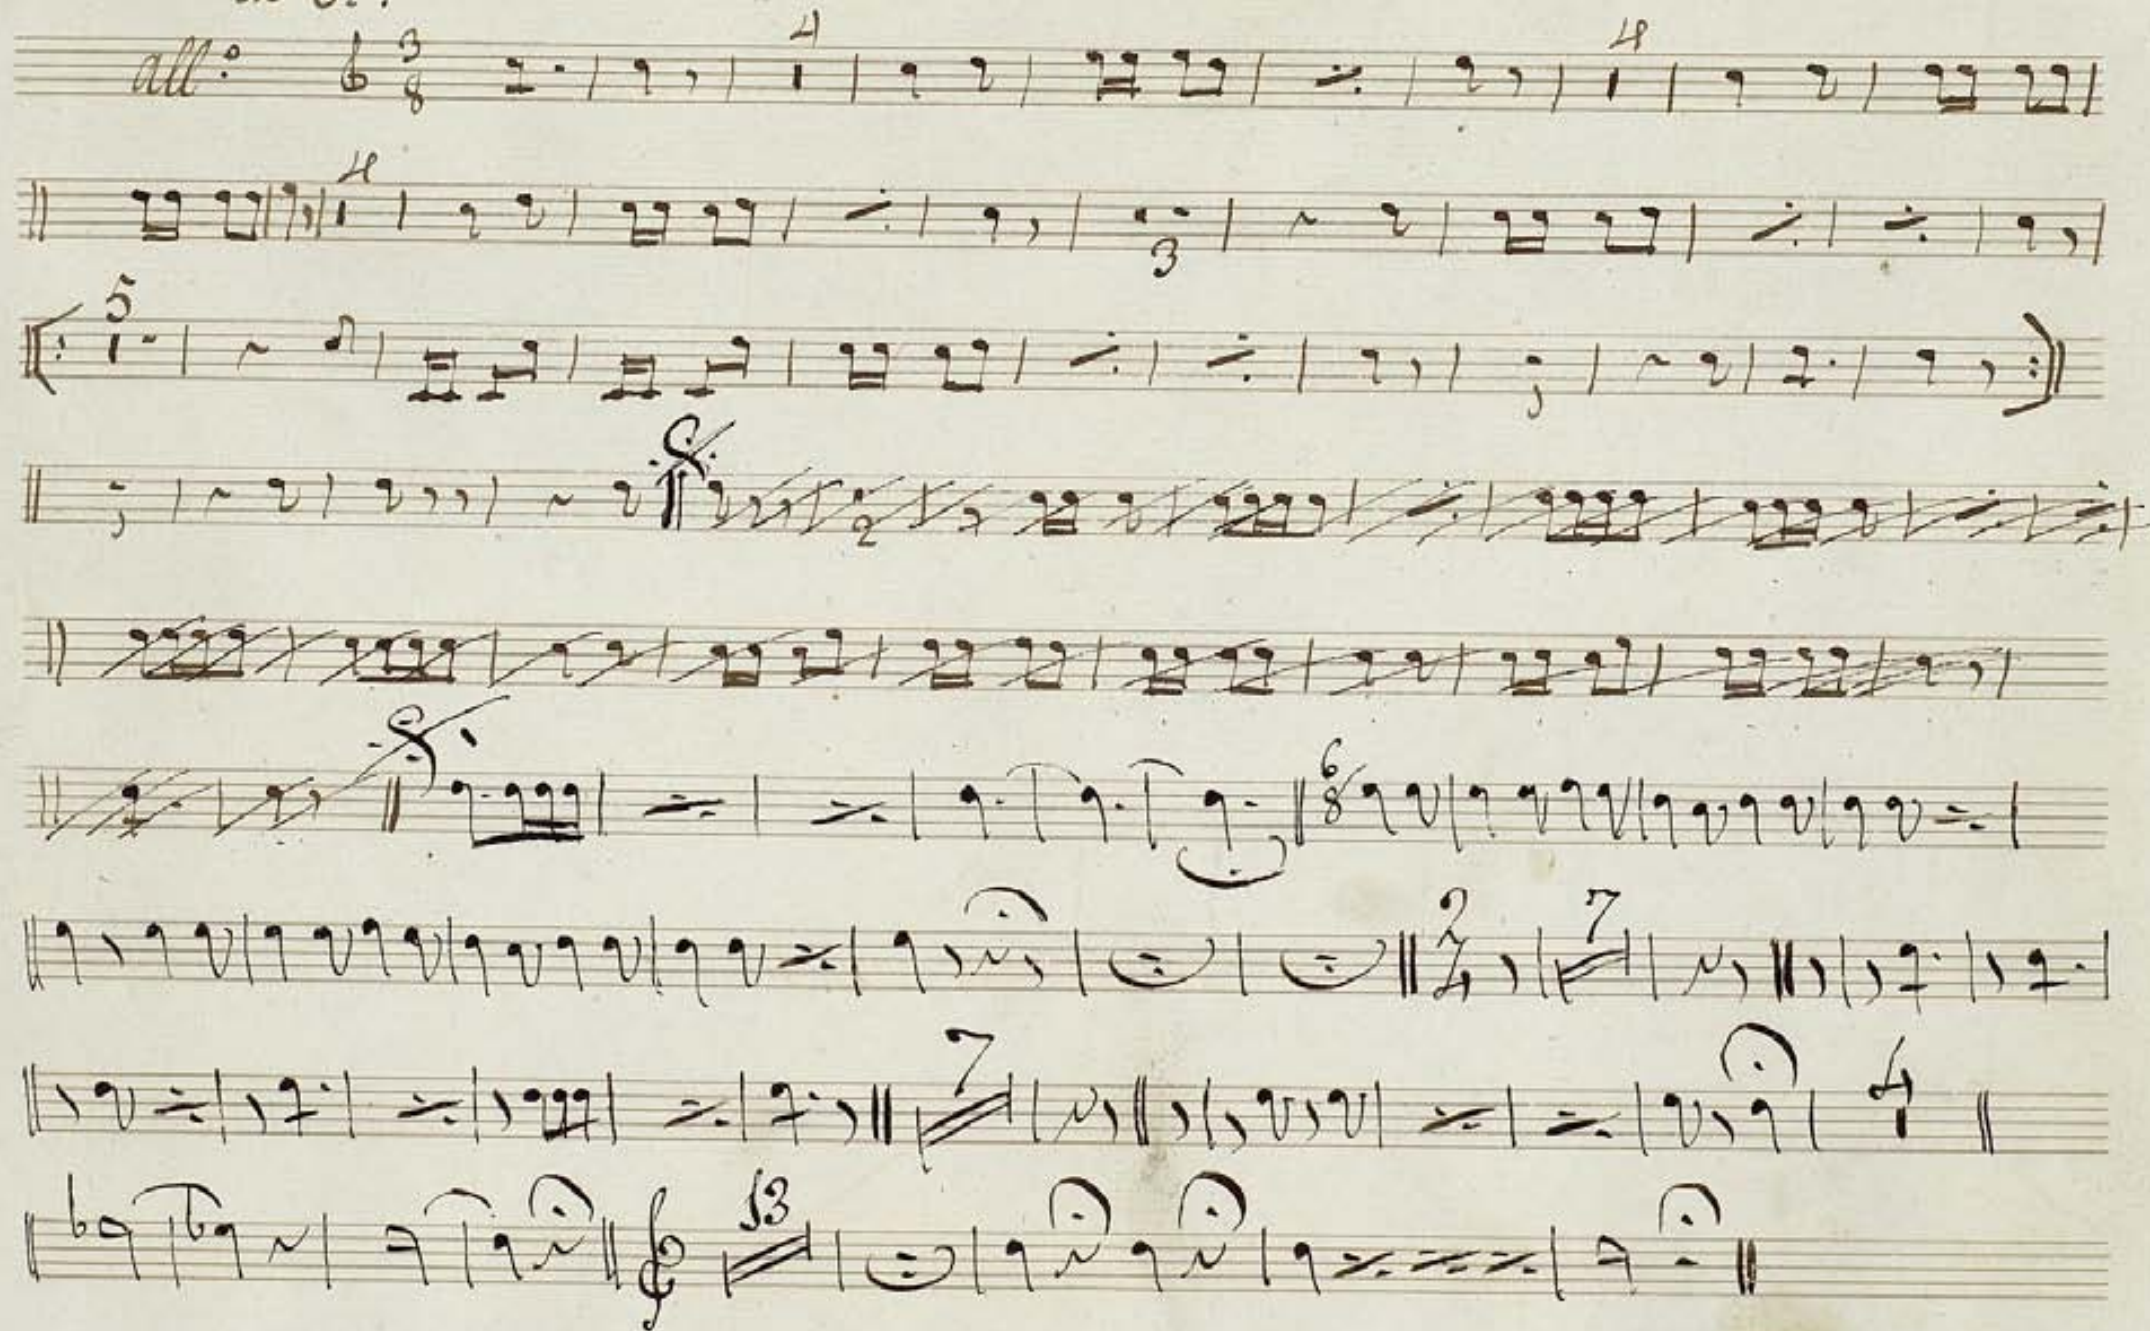 all:o 3 8 4 4
4 3
5
2
6 8
2 4 7
7 4
13